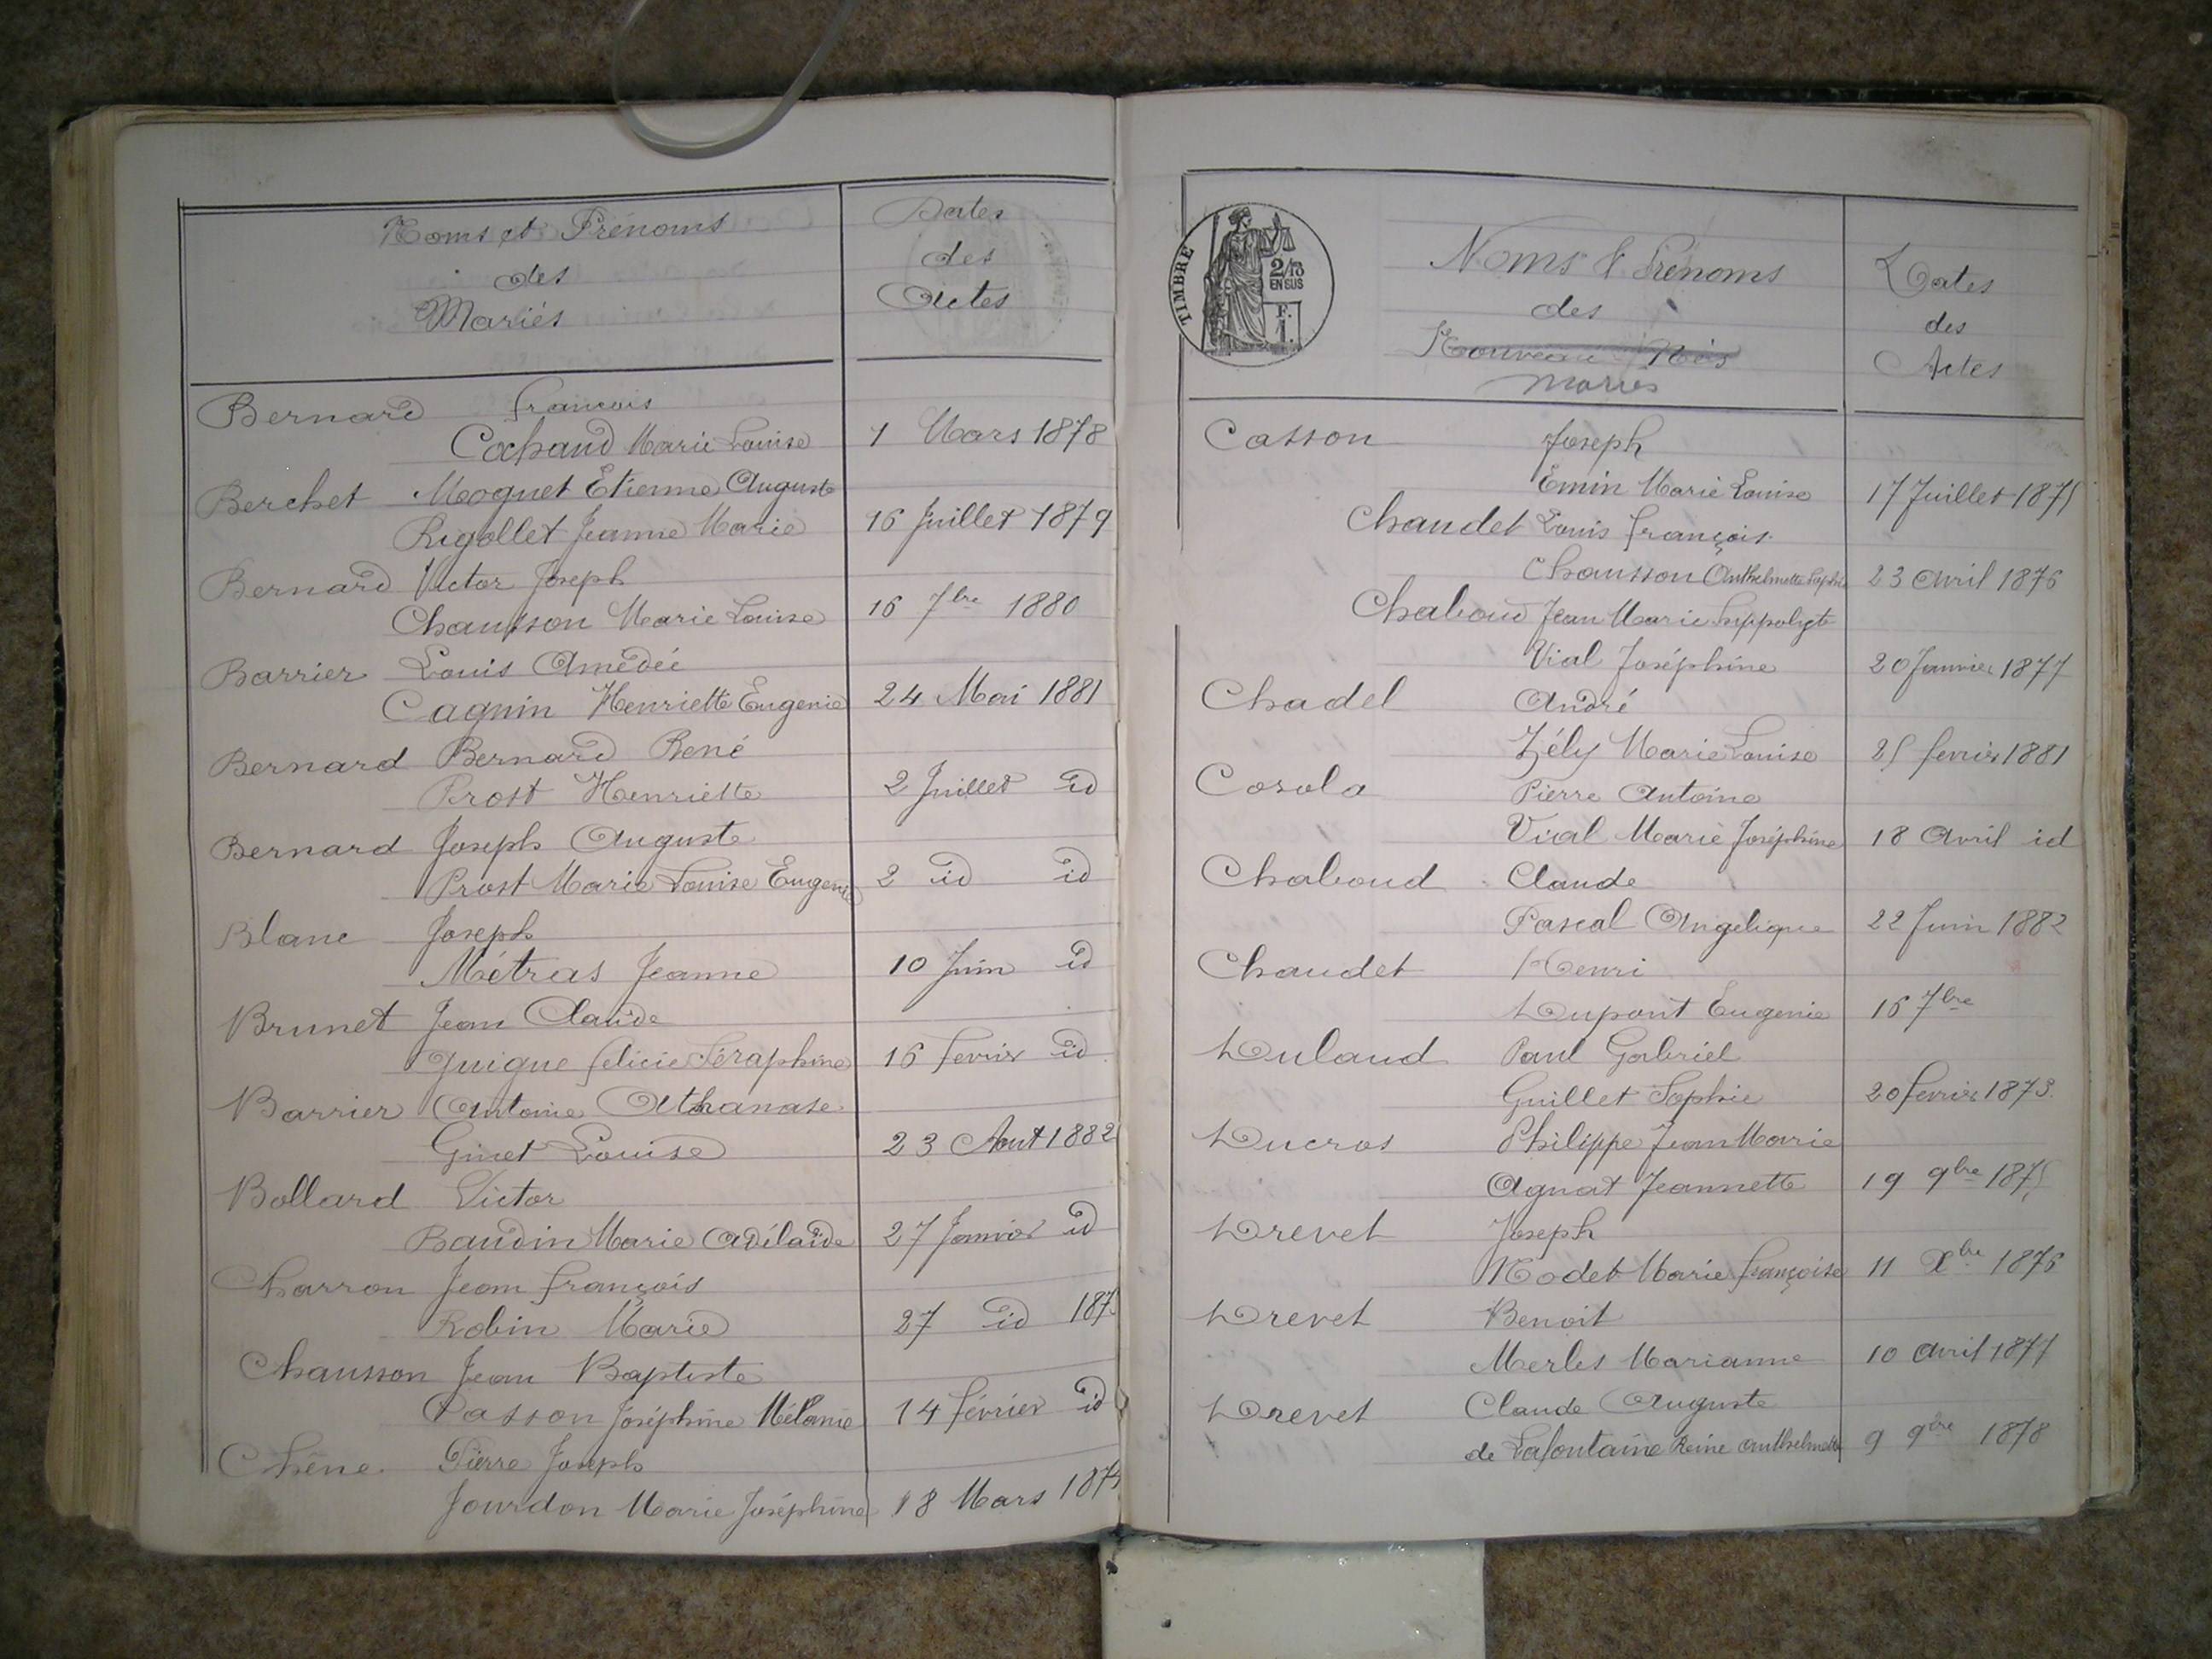 Noms et Prénoms
des
Mariés
Dates
des
Actes
Bernard François
Cochand Marie Louise 1 Mars 1878
Berchet Moquet Etienne Auguste
Rigollet Jeanne Marie 16 Juillet 1879
Bernard Victor Joseph
Chausson Marie Louise 16 7bre 1880
Barrier Louis Amédée
Cagnin Henriette Eugenie 24 Mai 1881
Bernard Bernard René
Prost Henriette 2 Juillet id
Bernard Joseph Auguste
Prost Marie Louise Eugenie 2 id id
Blanc Joseph
Métras Jeanne 10 Juin id
Brunet Jean Claude
Guigue felicie Séraphine 16 fevrier id
Barrier Antoine Athanase
Ginet Louise 23 Aout 1882
Bollard Victor
Baudin Marie Adélaïde 27 Janvier id
Charron Jean françois
Robin Marie 27 id 187
Chausson Jean Baptiste
Passon Joséphine Mélanie 14 février id
Chêne Pierre Joseph
Jourdon Marie Joséphine 18 Mars 1874
TIMBRE
2/10
EN SUS
F.
1.
Noms & Prénoms
des
Nouveau Nés
mariés
Dates
des
Actes
Casson Joseph
Emin Marie Louise 17 Juillet 1875
Chaudet Louis François
Chausson Anthelmette Sophie 23 Avril 1876
Chaboud Jean Marie hippolyte
Vial Joséphine 20 Janvier 1877
Chadel André
Zély Marie Louise 25 fevrier 1881
Corola Pierre Antoine
Vial Marie Joséphine 18 Avril id
Chaboud Claude
Pascal Angelique 22 Juin 1882
Chaudet Henri
Dupont Eugenie 16 7bre
Dulaud Paul Gabriel
Guillet Sophie 20 fevrier 1873
Ducros Philippe Jean Marie
Agnat Jeannette 19 9bre 1875
Drevet Joseph
Nodet Marie françoise 11 Xbre 1876
Drevet Benoit
Merles Marianne 10 Avril 1877
Drevet Claude Auguste
de Lafontaine Reine Anthelmette 9 9bre 1878